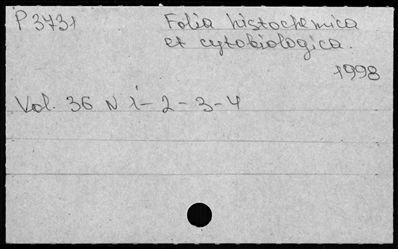 P 3731 Folia histochemica
et cytobiologica.
1998
Vol. 36 N 1-2-3-4